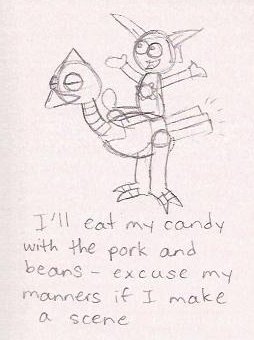 I'll eat my candy
with the pork and
beans - excuse my
manners if I make
a scene